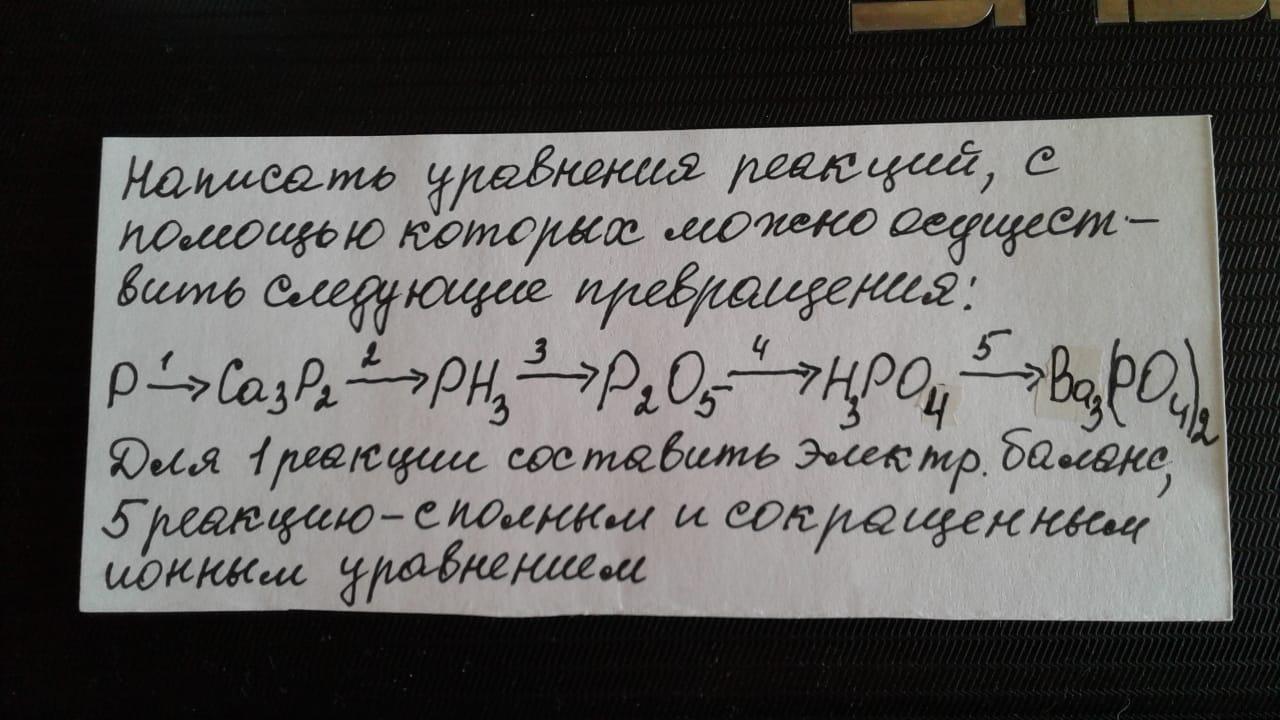 Написать уравнения реакций, с
помощью которых можно осущест-
вить следующие превращения:
P 1→ Ca₃P₂ 2→ PH₃ 3→ P₂O₅ 4→ H₃PO₄ 5→ Ba₃(PO₄)₂
Для 1 реакции составить электр. баланс,
5 реакцию - с полным и сокращенным
ионным уравнением